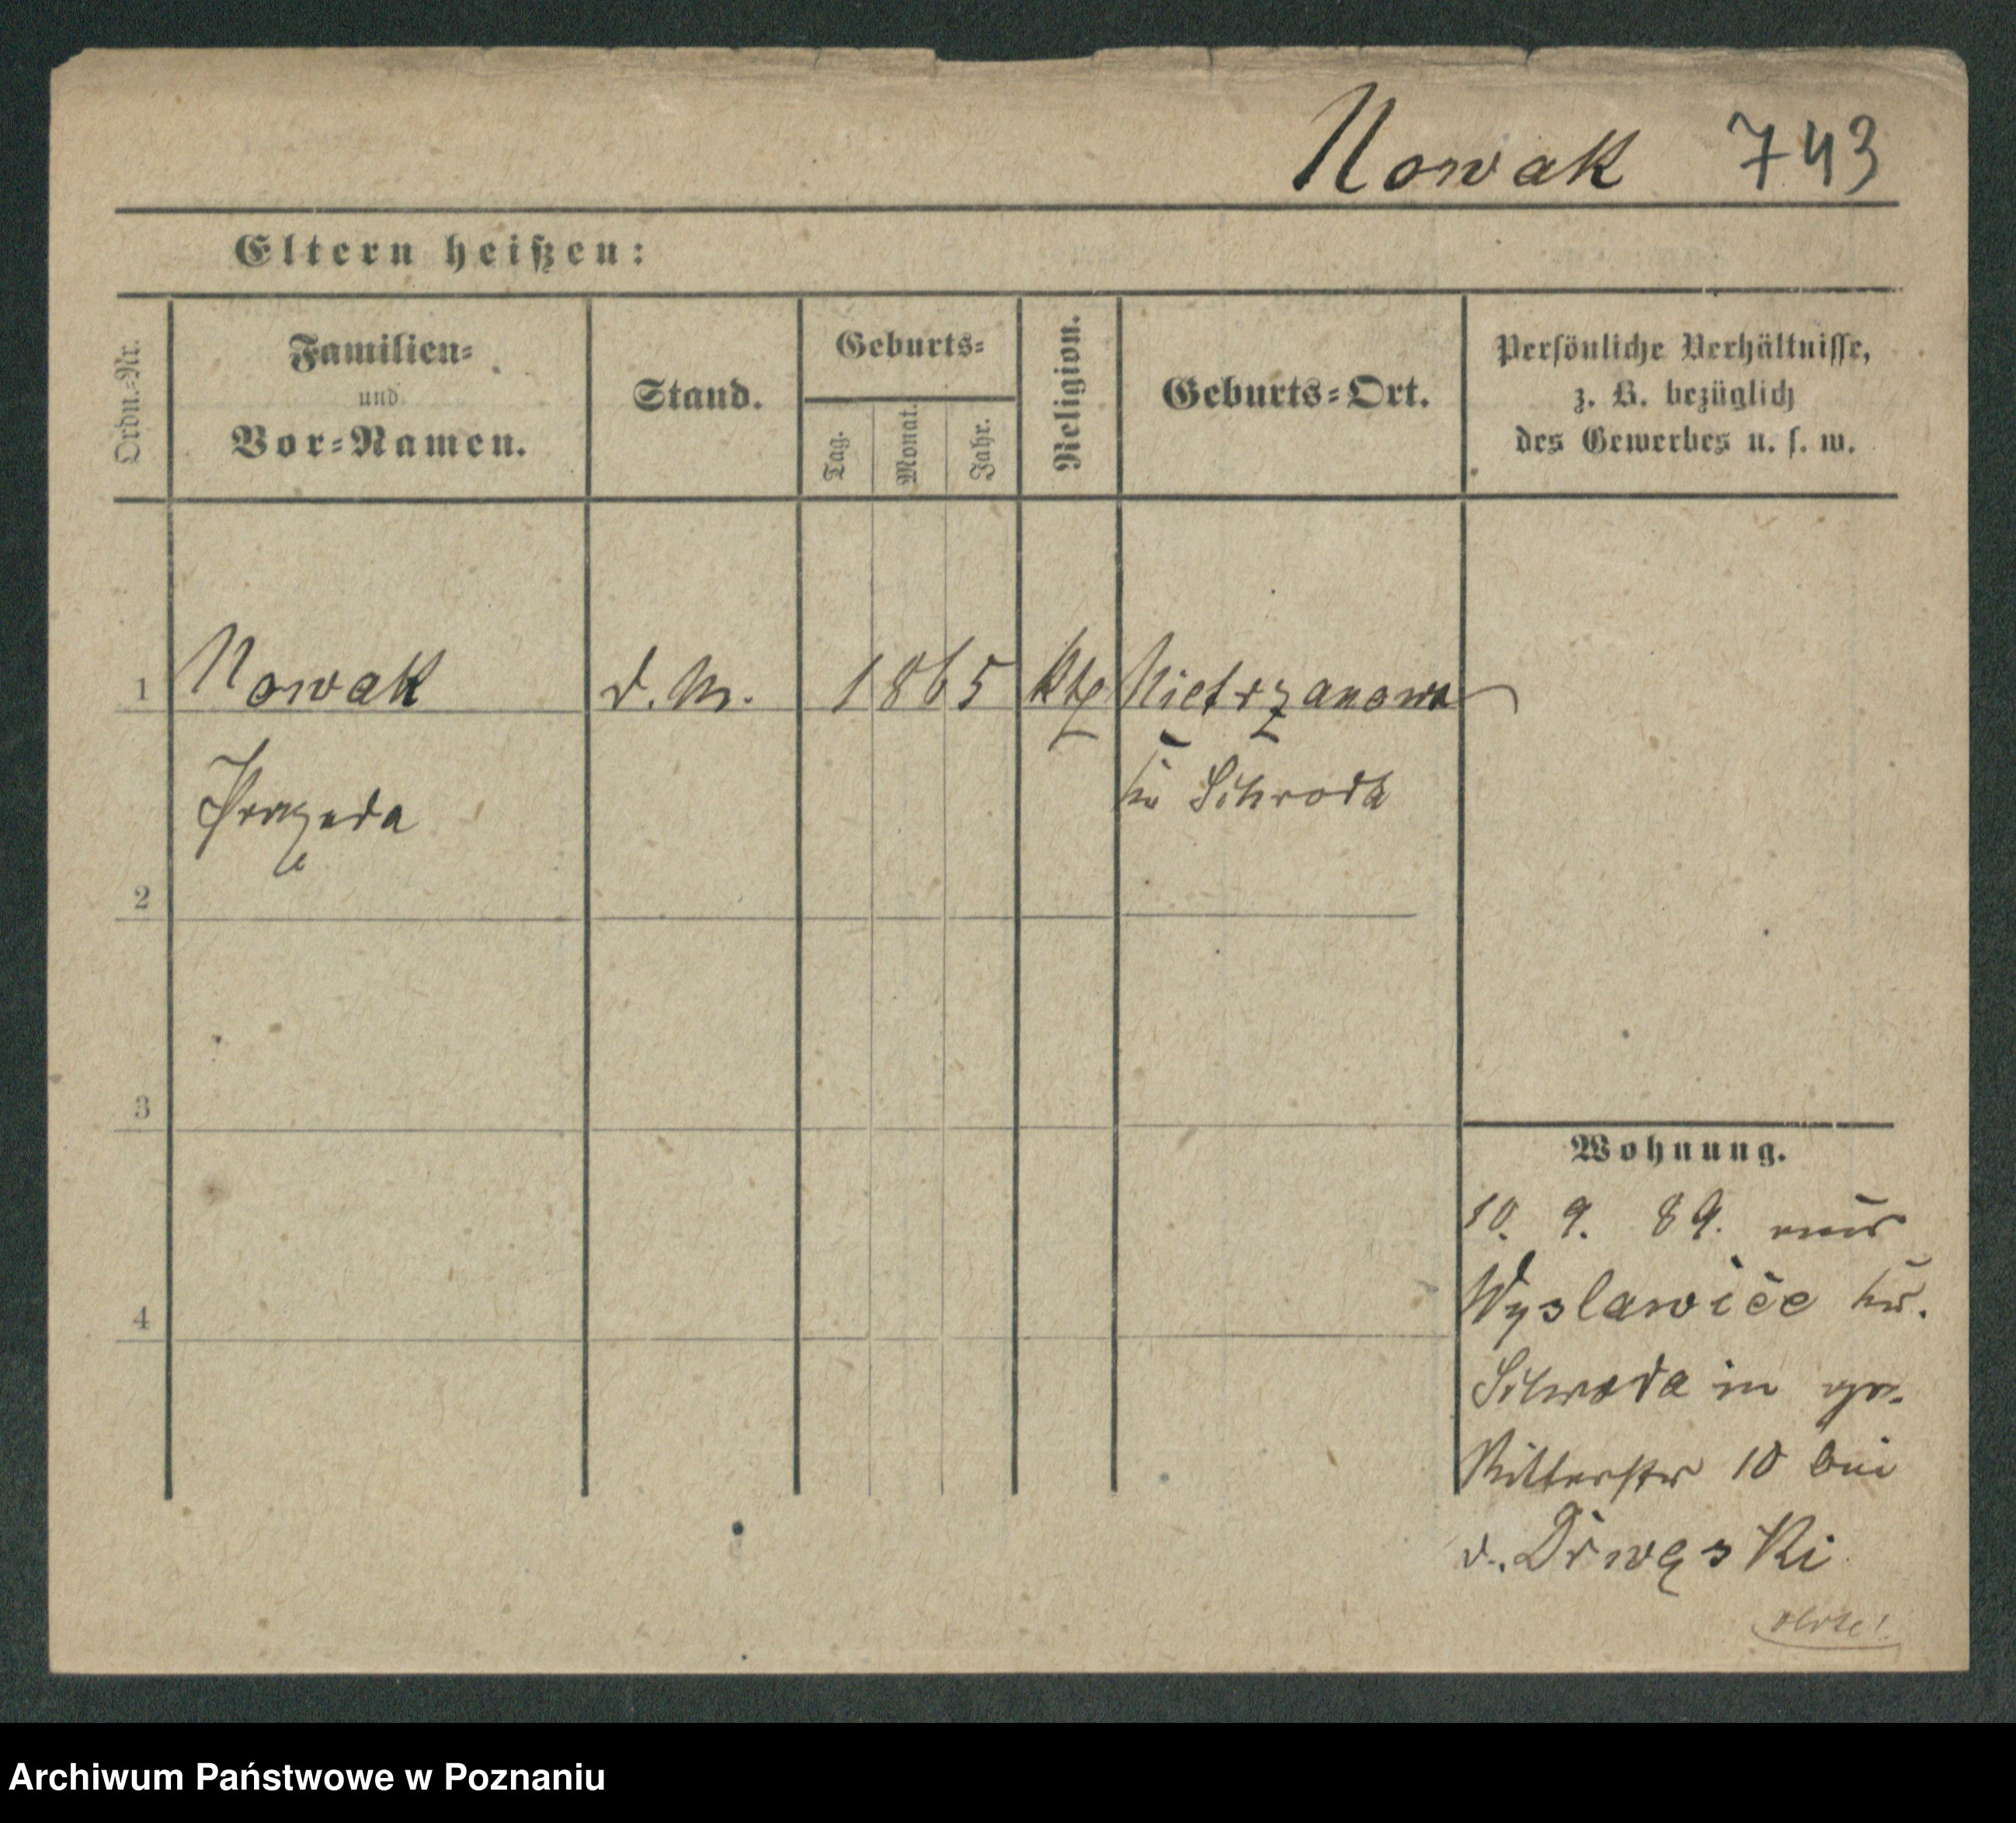 Nowak 743
Eltern heißen:
Ordn.-Nr.
Familien-
und
Vor-Namen.
Stand.
Geburts-
Tag.
Monat.
Jahr.
Religion.
Geburts-Ort.
Persönliche Verhältnisse,
z. B. bezüglich
des Gewerbes u. s. w.
1 Nowak d. M. 1865 Kth Nietrzanowo
Kr Schroda
2
3
4
Wohnung.
10. 9. 89. aus
Wyslawice Kr.
Schroda in gr.
Ritterstr 10 bei
v. Drwęski
Archiwum Państwowe w Poznaniu